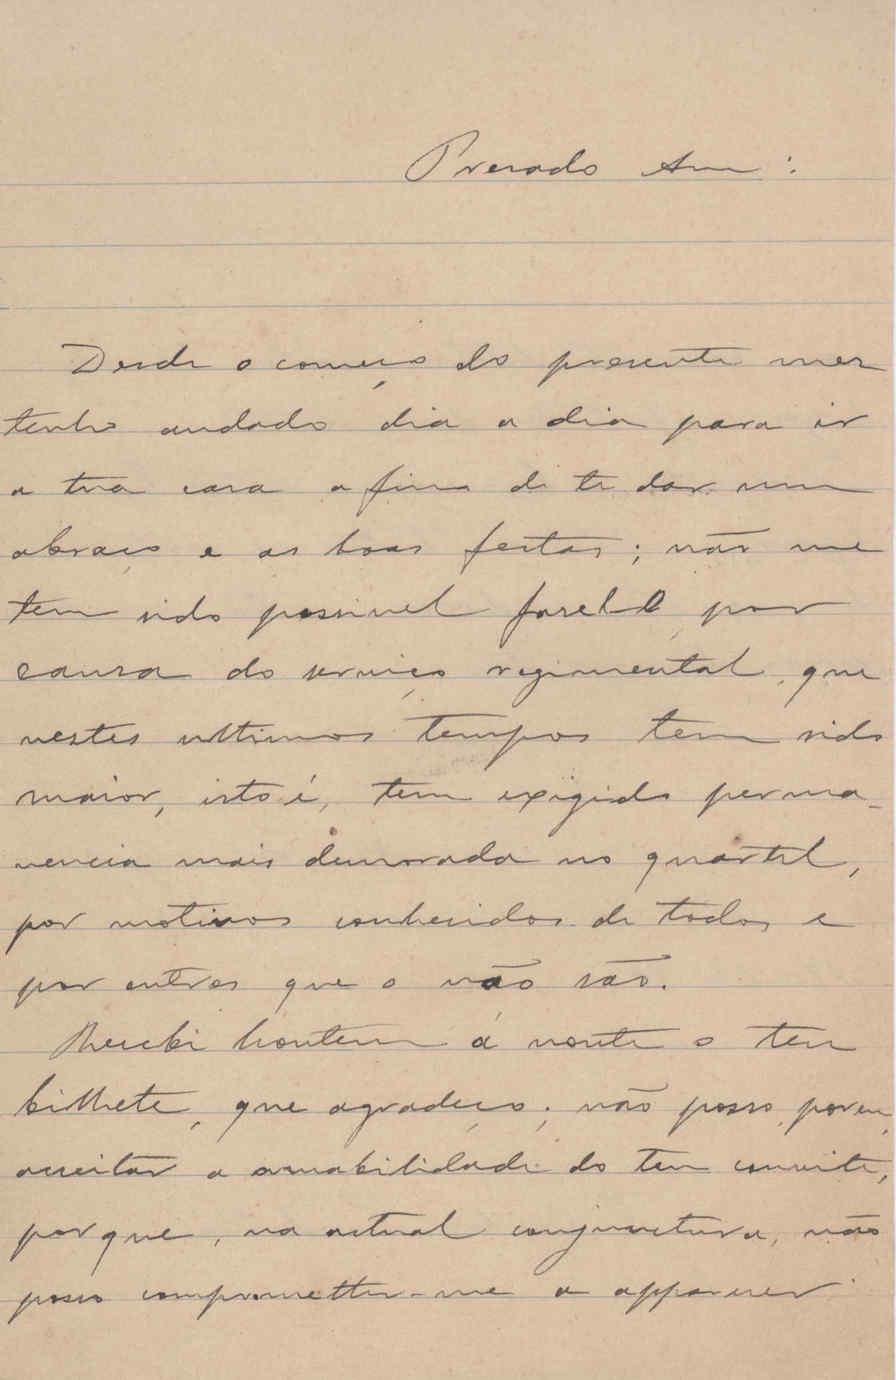 Presado Am :
Desde o começo do presente mez
tenho andado dia a dia para ir
a tua casa a fim de te dar um
abraço e as boas festas; não me
tem sido possivel fasel-o por
causa do serviço regimental, que
nestes ultimos tempos tem sido
maior, isto é, tem exigido perma-
nencia mais demorada no quartel,
por motivos conhecidos de todos e
por outros que o não são.
Recebi hontem á noute o teu
bilhete, que agradeço; não posso, porem,
acceitar a amabilidade do teu convite,
porque, na actual conjunctura, não
posso comprometter-me a apparecer